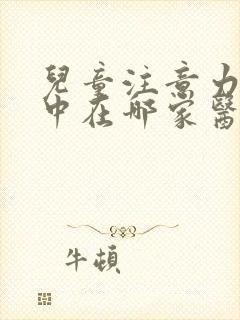 兒童注意力
中在哪家醫
牛頓